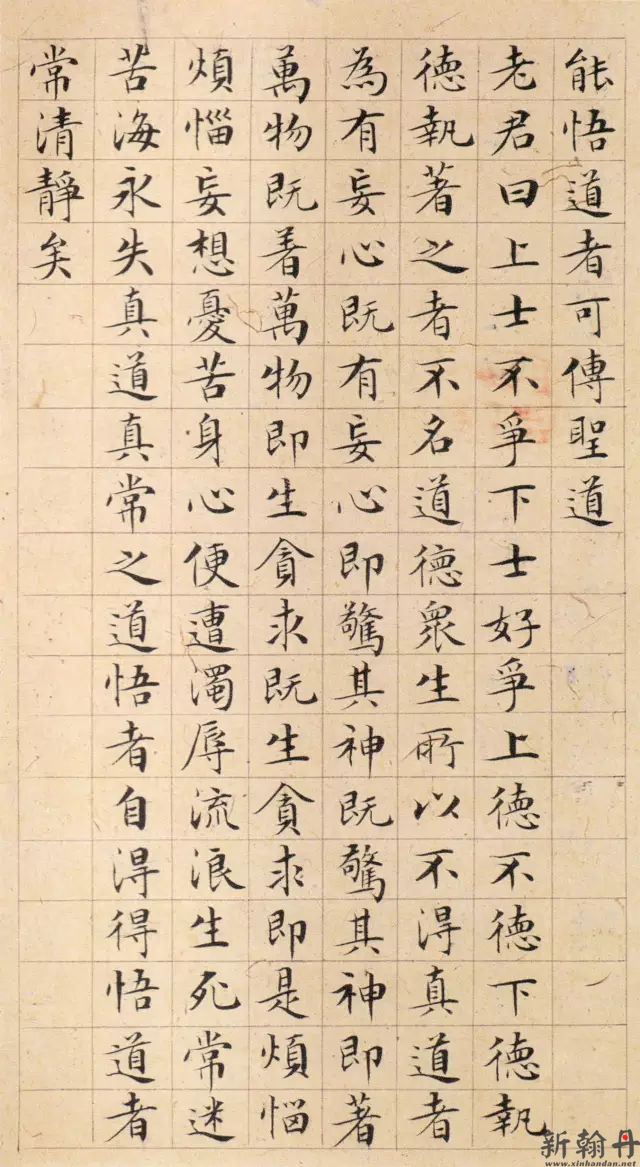 能悟道者可傳聖道
老君曰上士不爭下士好爭上德不德下德執
德執著之者不名道德衆生所以不淂真道者
為有妄心既有妄心即驚其神既驚其神即著
萬物既着萬物即生貪求既生貪求即是煩惱
煩惱妄想憂苦身心便遭濁辱流浪生死常迷
苦海永失真道真常之道悟者自淂得悟道者
常清靜矣
新翰丹
www.xinhandan.net